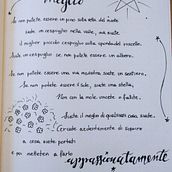 meglio
Se non potete essere un pino sulla vetta del monte
siate un cespuglio nella valle, ma siate
il miglior piccolo cespuglio sulla sponda del ruscello.
Siate un cespuglio se non potete essere un albero.
Se non potete essere una via maestra siate un sentiero.
Se non potete essere il sole, siate una stella,
Non con la mole vincete o fallite.
Siate il meglio di qualunque cosa siate.
Cercate ardentemente di scoprire
a cosa siete portati
e poi mettetevi a farlo
appassionatamente